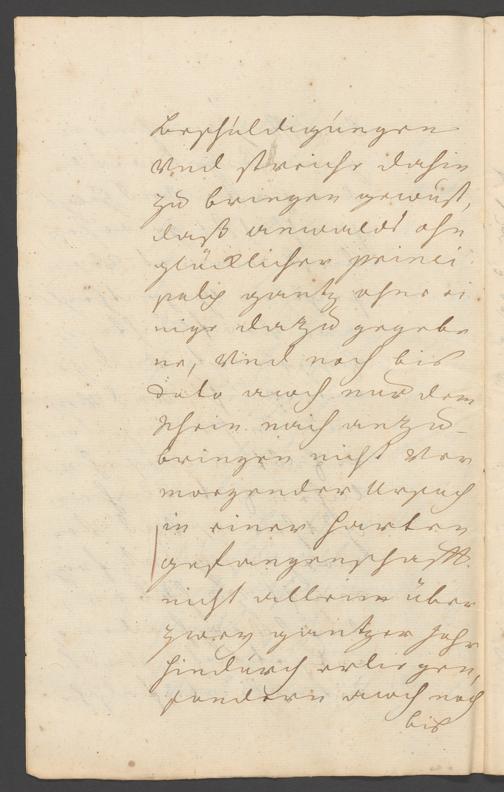 beschúldigúngen
Vnd streiche dahin
zú bringen gewúst,
daß anwalds ohn
glücklicher princi
palis gantz ohne ei
nige dazú gegebe
ne, Vnd noch bis
dato auch nur dem
schein nach anzú-
bringen nicht Ver
moegender Ursach
in einer harten
gefangenschafft
nicht allein über
zwey gantzer Jahr
hindúrch erliegen,
sondern auch noch
bis